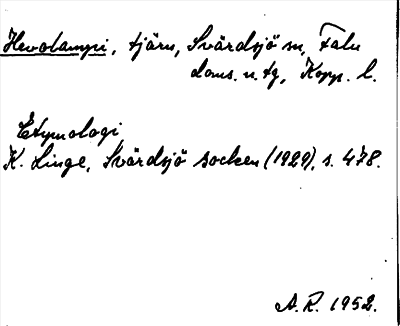 Hevolampi, tjärn, Svärdsjö sn, Falu
doms. n. tg, Kopp. l.
Etymologi
K. Linge, Svärdsjö socken (1929), s. 478.
A. R. 1952.